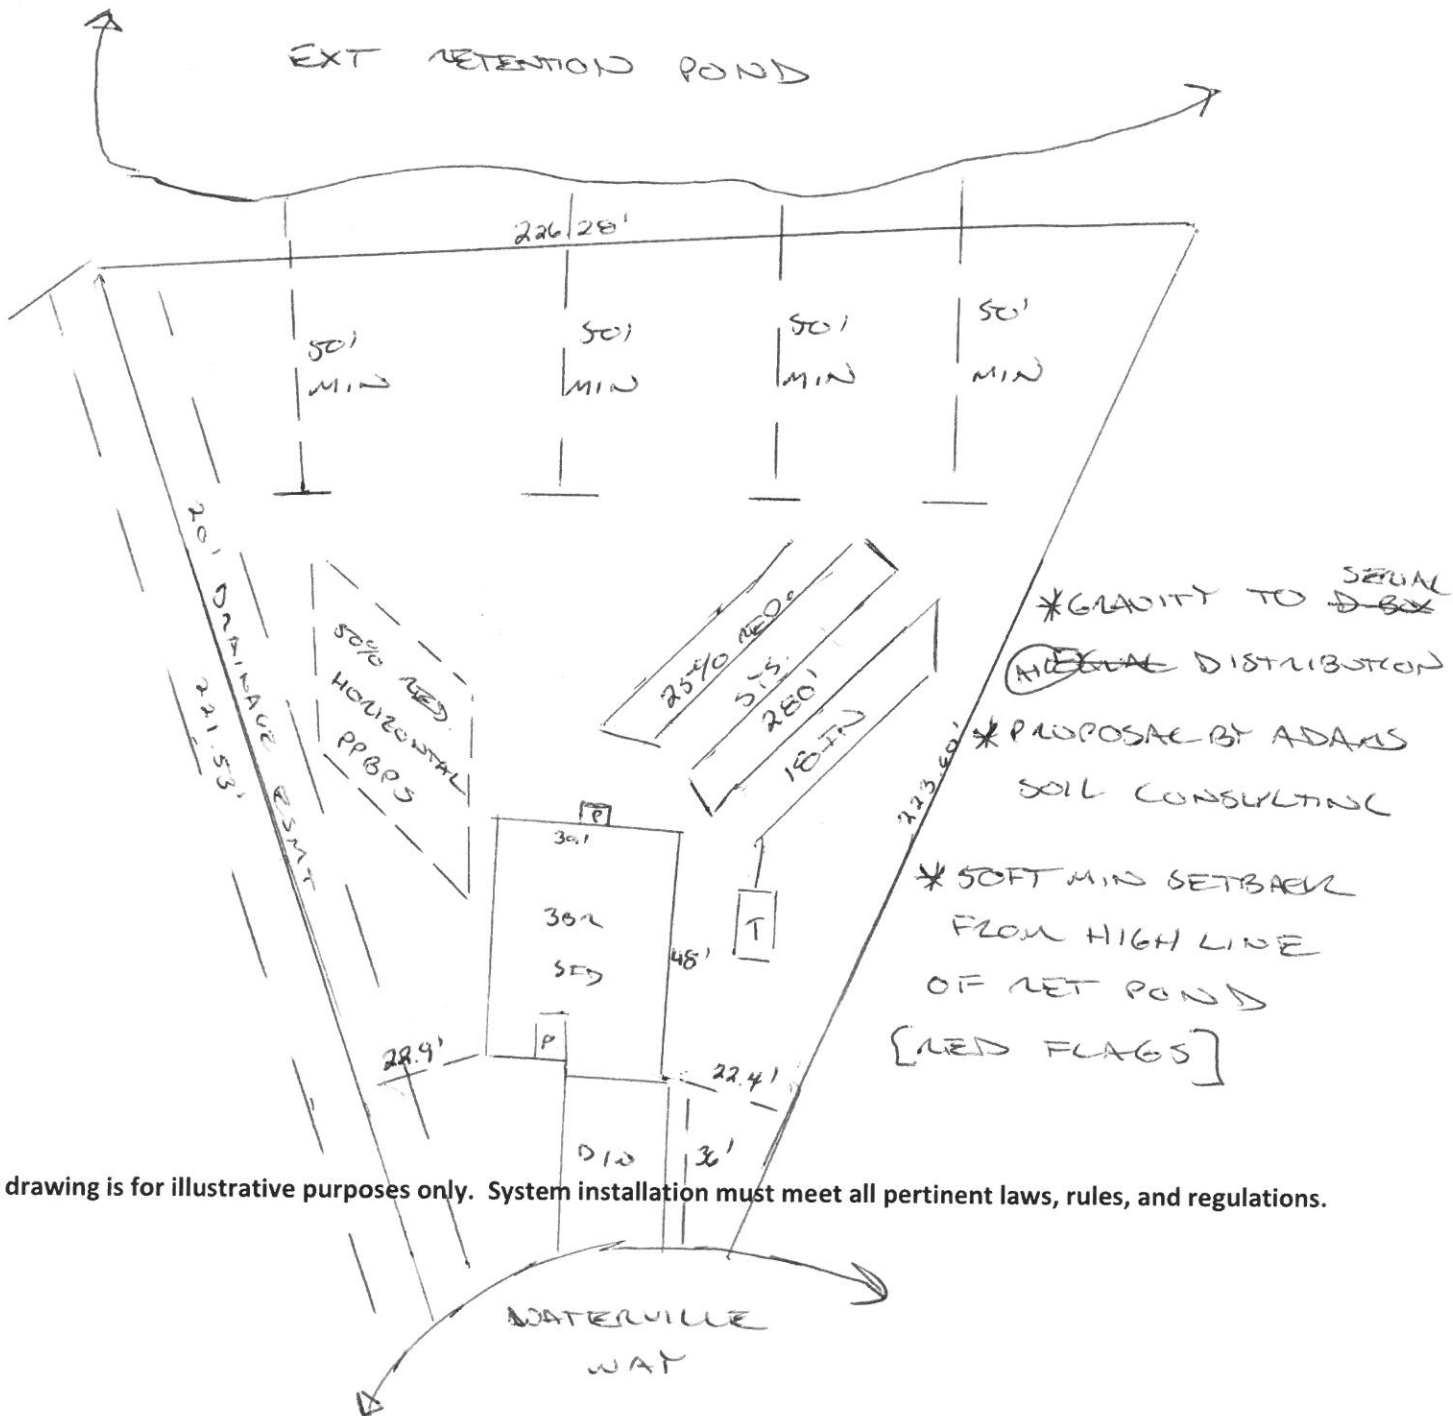 EXT RETENTION POND
226.28'
50'
MIN
50'
MIN
50'
MIN
50'
MIN
20' DRAINAGE ESMT
221.53'
50% RED.
HORIZONTAL
PPBPS
25% RED.
SYS.
280'
18-IN
223.60'
* GRAVITY TO D-BOX SERIAL
EQUAL DISTRIBUTION
* PROPOSAL BY ADAMS
SOIL CONSULTING
* 50FT MIN SETBACK
FROM HIGH LINE
OF RET POND
[RED FLAGS]
P
30'
3BR
SFD
48'
T
P
28.9'
22.4'
D/W
36'
drawing is for illustrative purposes only. System installation must meet all pertinent laws, rules, and regulations.
WATERVILLE
WAY